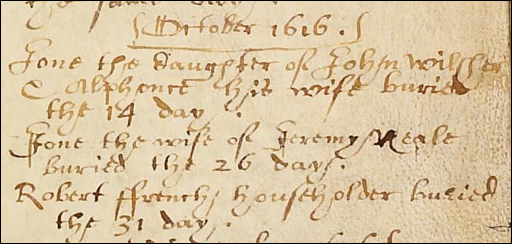 October 1616.
Jone the daughter of John Wilsher
& Alphonce his wife buried
the 14 day.
Jone the wife of Jeremy Neale
buried the 26 day.
Robert ffrench, householder buried
the 31 day.